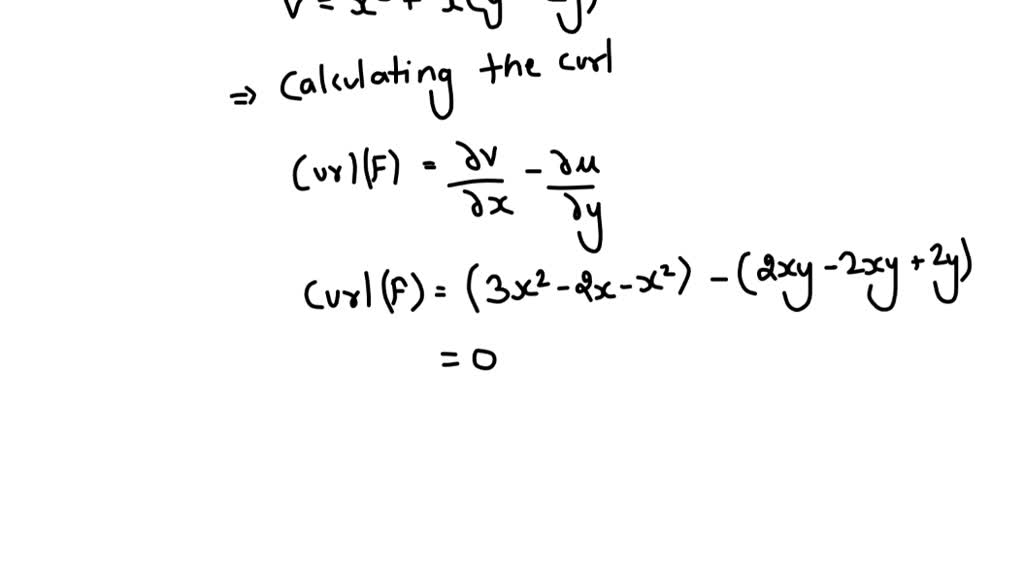 ⇒ Calculating the curl
Curl(F) = ∂v/∂x - ∂u/∂y
Curl(F) = (3x² - 2x - x²) - (2xy - 2xy + 2y)
= 0